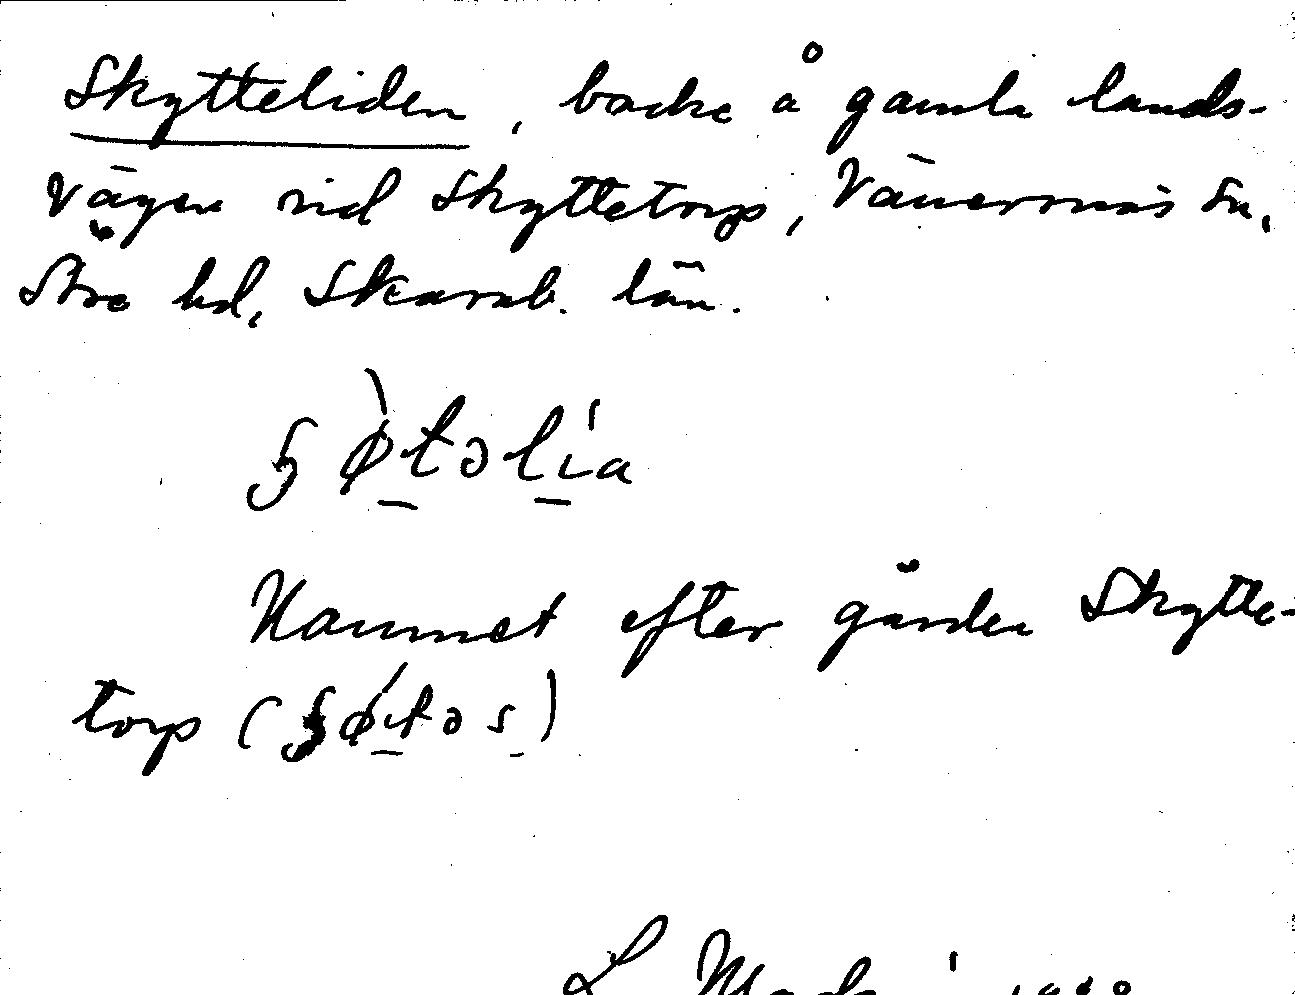 Skytteliden, backe å gamla lands-
vägen vid Skyttetorp, Vänersnäs sn,
Åse hd, Skarab. län.
Namnet efter gården Skytte-
torp